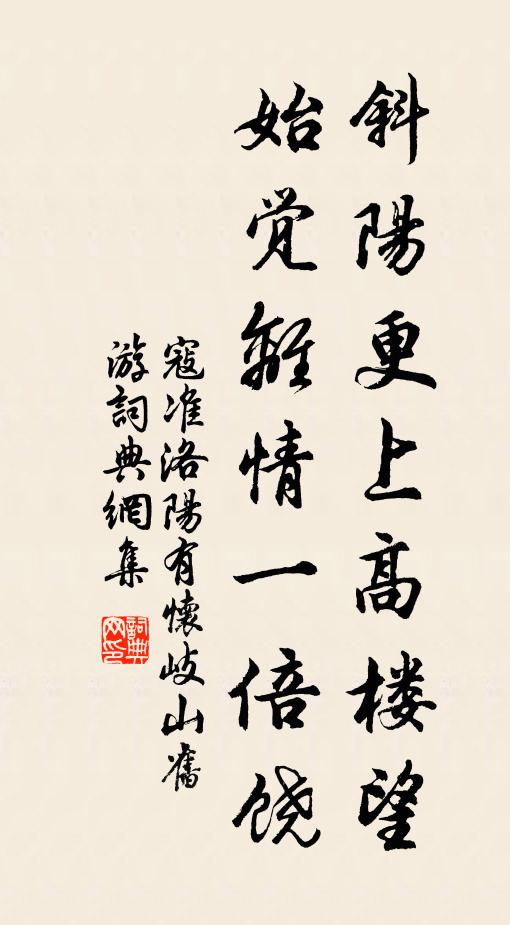 斜陽更上高楼望
始觉離情一倍饶
寇准洛陽有懷岐山舊
游詞典網集
詞典网印